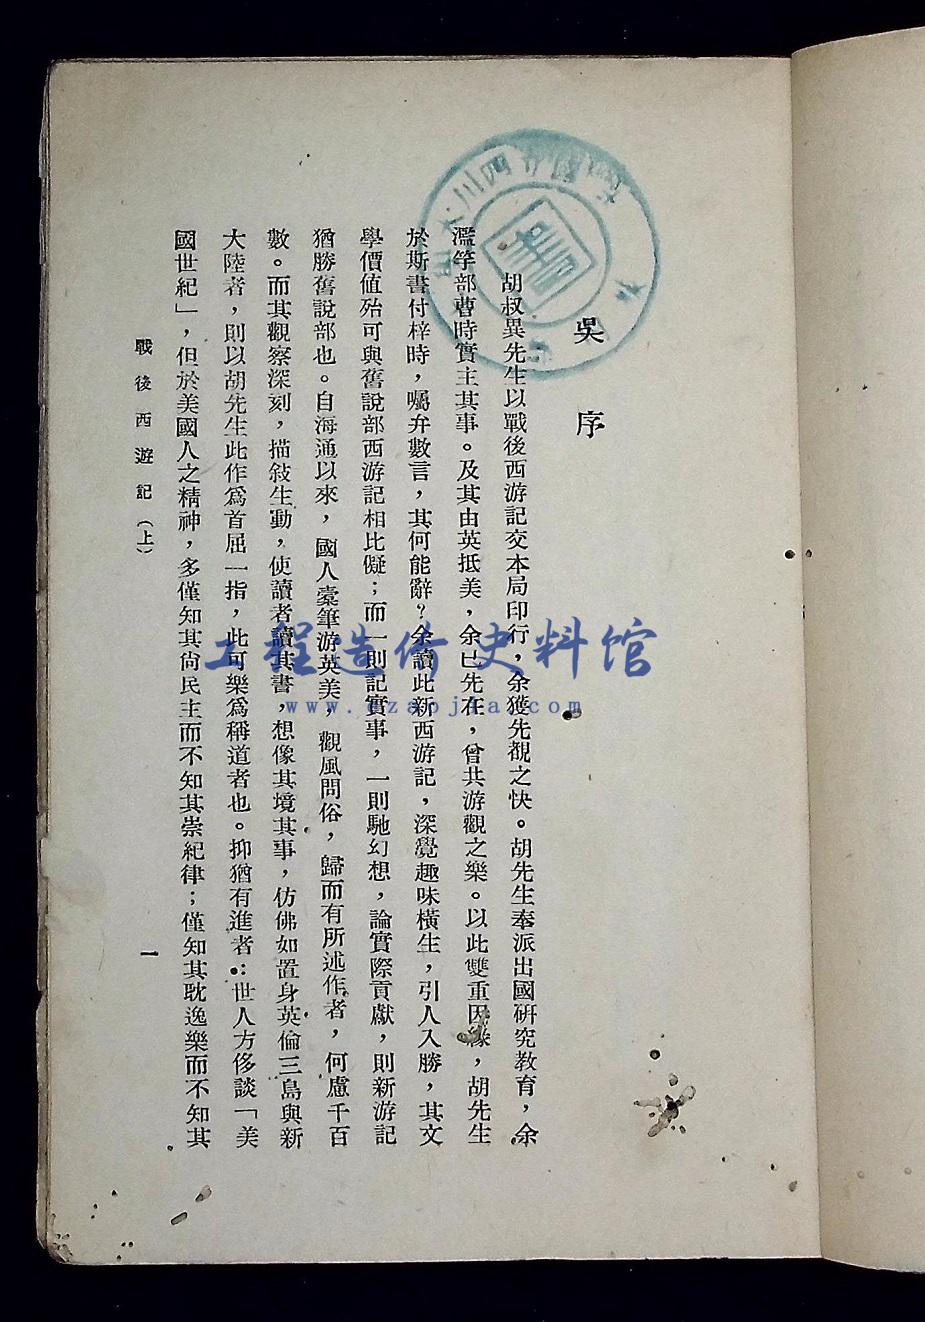 吳序
胡叔異先生以戰後西游記交本局印行，余獲先覩之快。胡先生奉派出國硏究教育，余
濫竽部曹時實主其事。及其由英抵美，余已先在，曾共游觀之樂。以此雙重因緣，胡先生
於斯書付梓時，囑弁數言，其何能辭？余讀此新西游記，深覺趣味橫生，引人入勝，其文
學價值殆可與舊說部西游記相比儗；而一則記實事，一則馳幻想，論實際貢獻，則新游記
猶勝舊說部也。自海通以來，國人橐筆游英美，觀風問俗，歸而有所述作者，何慮千百
數。而其觀察深刻，描敍生動，使讀者讀其書，想像其境其事，仿佛如置身英倫三島與新
大陸者，則以胡先生此作爲首屈一指，此可樂爲稱道者也。抑猶有進者：世人方侈談「美
國世紀」，但於美國人之精神，多僅知其尙民主而不知其崇紀律；僅知其耽逸樂而不知其
戰後西遊記（上）
一
工程造价史料馆
www.czaojia.com